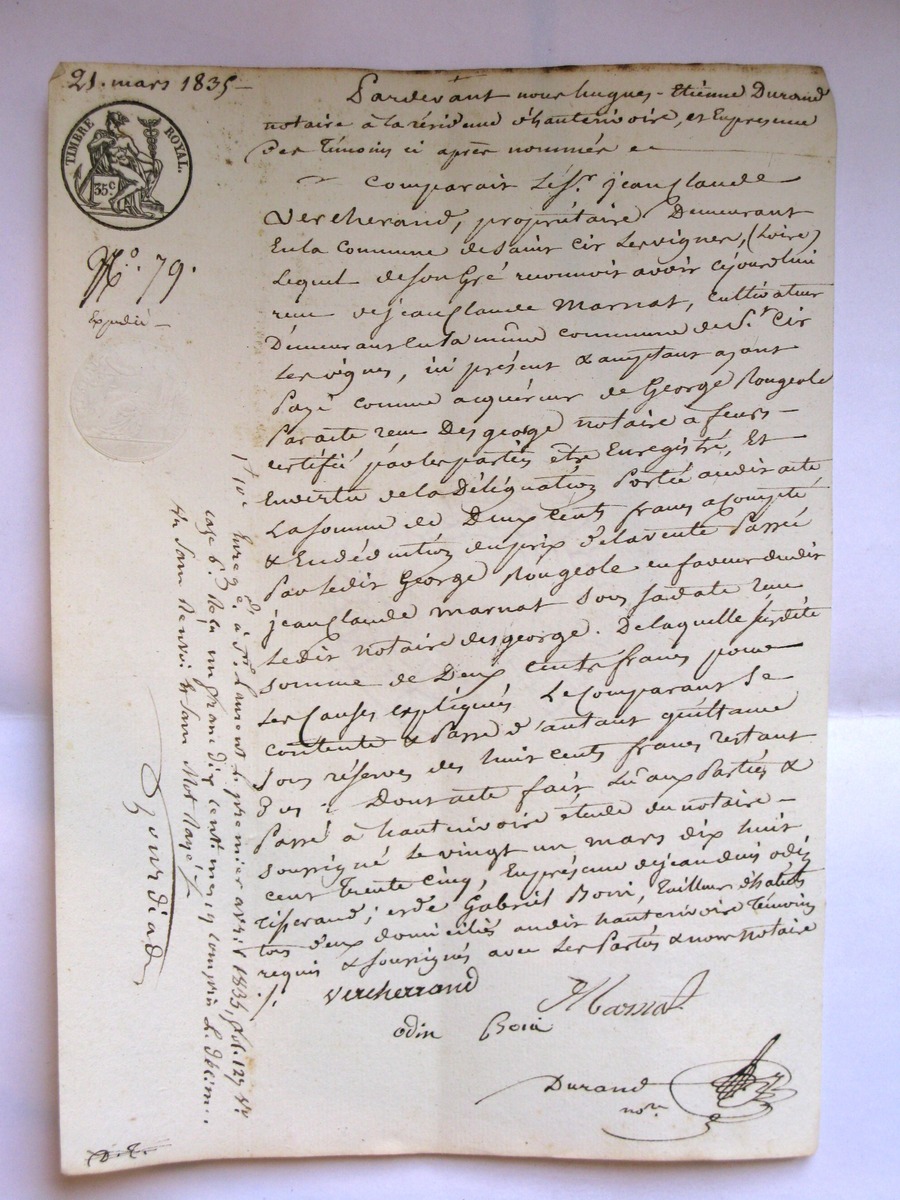 21. mars 1835
TIMBRE ROYAL.
35c.
No. 79.
Expédié
Pardevant nous hugues-Etienne Durand
notaire à la résidence d'hauterivoire, et En presence
des Témoins ci après nommés
Comparait Le Sr. jean claude
Vercherand, propriétaire Demeurant
En la commune de saint Cir Les vignes, (Loire)
Lequel de son Gré reconnoit avoir cejourdhui
recu de jean claude Marnat, cultivateur
Demeurant En la même commune de St. Cir
Les vignes, ici présent & acceptant ayant
Payé comme acquéreur de George Rougeole
Par acte recu Desgeorge notaire à feurs
certifié par les parties être Enregistré, Et
En vertu de la Délégation Portée audit acte
La somme de Deux cents francs acompte
& En déduction du prix de la vente Passée
Par Ledit George Rougeole en faveur dudit
jean claude marnat sous sa date recu
Ledit notaire desgeorge. De laquelle susdite
somme de Deux cents francs pour
Les Causes expliqués Le Comparant Se
contente & Passe d'autant quittance
sous réserves des huit cents francs restant
Dus. Dont acte fait Lû aux Parties &
Passé à hauterivoire étude du notaire
soussigné Le vingt un mars dix huit
cent trente cinq, En présence de jean denis odin
Tisserand; et de Gabriel Boni, Tailleur d'habits
tous deux domiciliés audit hauterivoire Témoins
requis & soussignés avec Les Parties & nous Notaire
Vercherrand
Marnat
odin
Boni
Durand
nore
Enregé. à St. Laurent le premier avril 1835, fol. 127 vo.
case 6. Reçu un franc dix centimes y compris le décim.
sans Renvoi & sans Mot Rayé